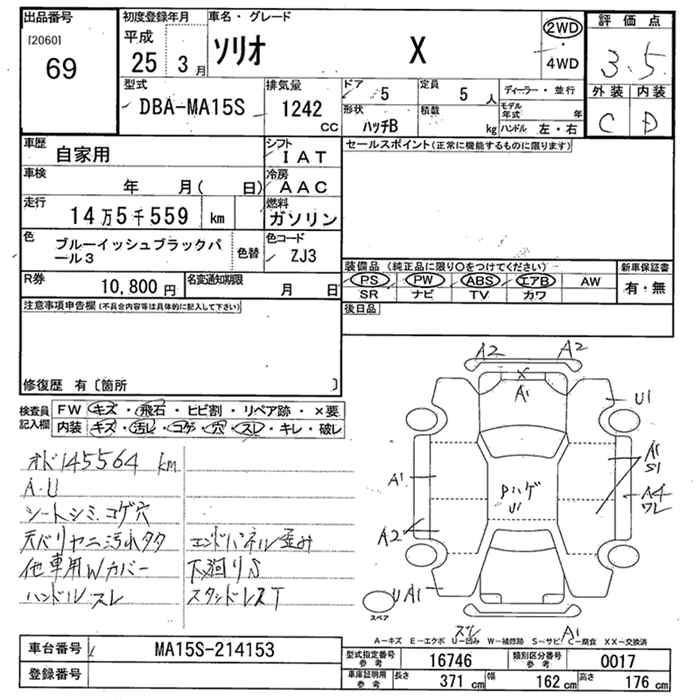 出品番号
[2060]
69
初度登録年月
平成
25 3 月
車名・グレード
ソリオ X
2WD
・
4WD
評価点
3.5
外装 内装
C D
型式
DBA-MA15S
排気量
1242 cc
ドア 5
定員 5 人
形状 ハッチB
積載 kg
ディーラー・並行
モデル年式 年
ハンドル 左・右
車歴
自家用
シフト
IAT
セールスポイント(正常に機能するものに限ります)
車検
年 月( 日)
冷房
AAC
走行
14万5千559 km
燃料
ガソリン
色
ブルーイッシュブラックパール3
色替
色コード
ZJ3
装備品 (純正品に限り○をつけてください)
PS PW ABS エアB AW
SR ナビ TV カワ
新車保証書
有・無
R券
10,800 円
名変通知期限
月 日
後日品
注意事項申告欄(不具合内容等は具体的に記入して下さい)
修復歴 有〔箇所 〕
検査員記入欄
FW キズ・飛石・ヒビ割・リペア跡・×要
内装 キズ・汚レ・コゲ・穴・スレ・キレ・破レ
オド145564 km
A・U
シートシミ、コゲ穴
天ベリヤニ汚れタタ
他車用Wカバー
ハンドルスレ
エンドパネル歪み
下廻りS
スタッドレスT
A2 A2
X
A1
U1
A1
S1
A1
Pハゲ
U1
A4
ワレ
A2
U A1
スペア
スレ A1
A−キズ E−エクボ U−凹み W−補修跡 S−サビ C−腐食 XX−交換済
車台番号
MA15S-214153
登録番号
型式指定番号
参考
16746
類別区分番号
参考
0017
車庫証明用
参考
長さ 371 cm
幅 162 cm
高さ 176 cm